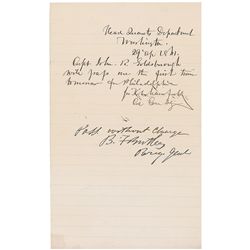 Head Quarts Department
Washington
29 Ap 1861.
Capt John. R. Goldsborough
will pass in the first train
tomorrow for Philadelphia
Pass without charge
B. F. Butler
Brig Genl